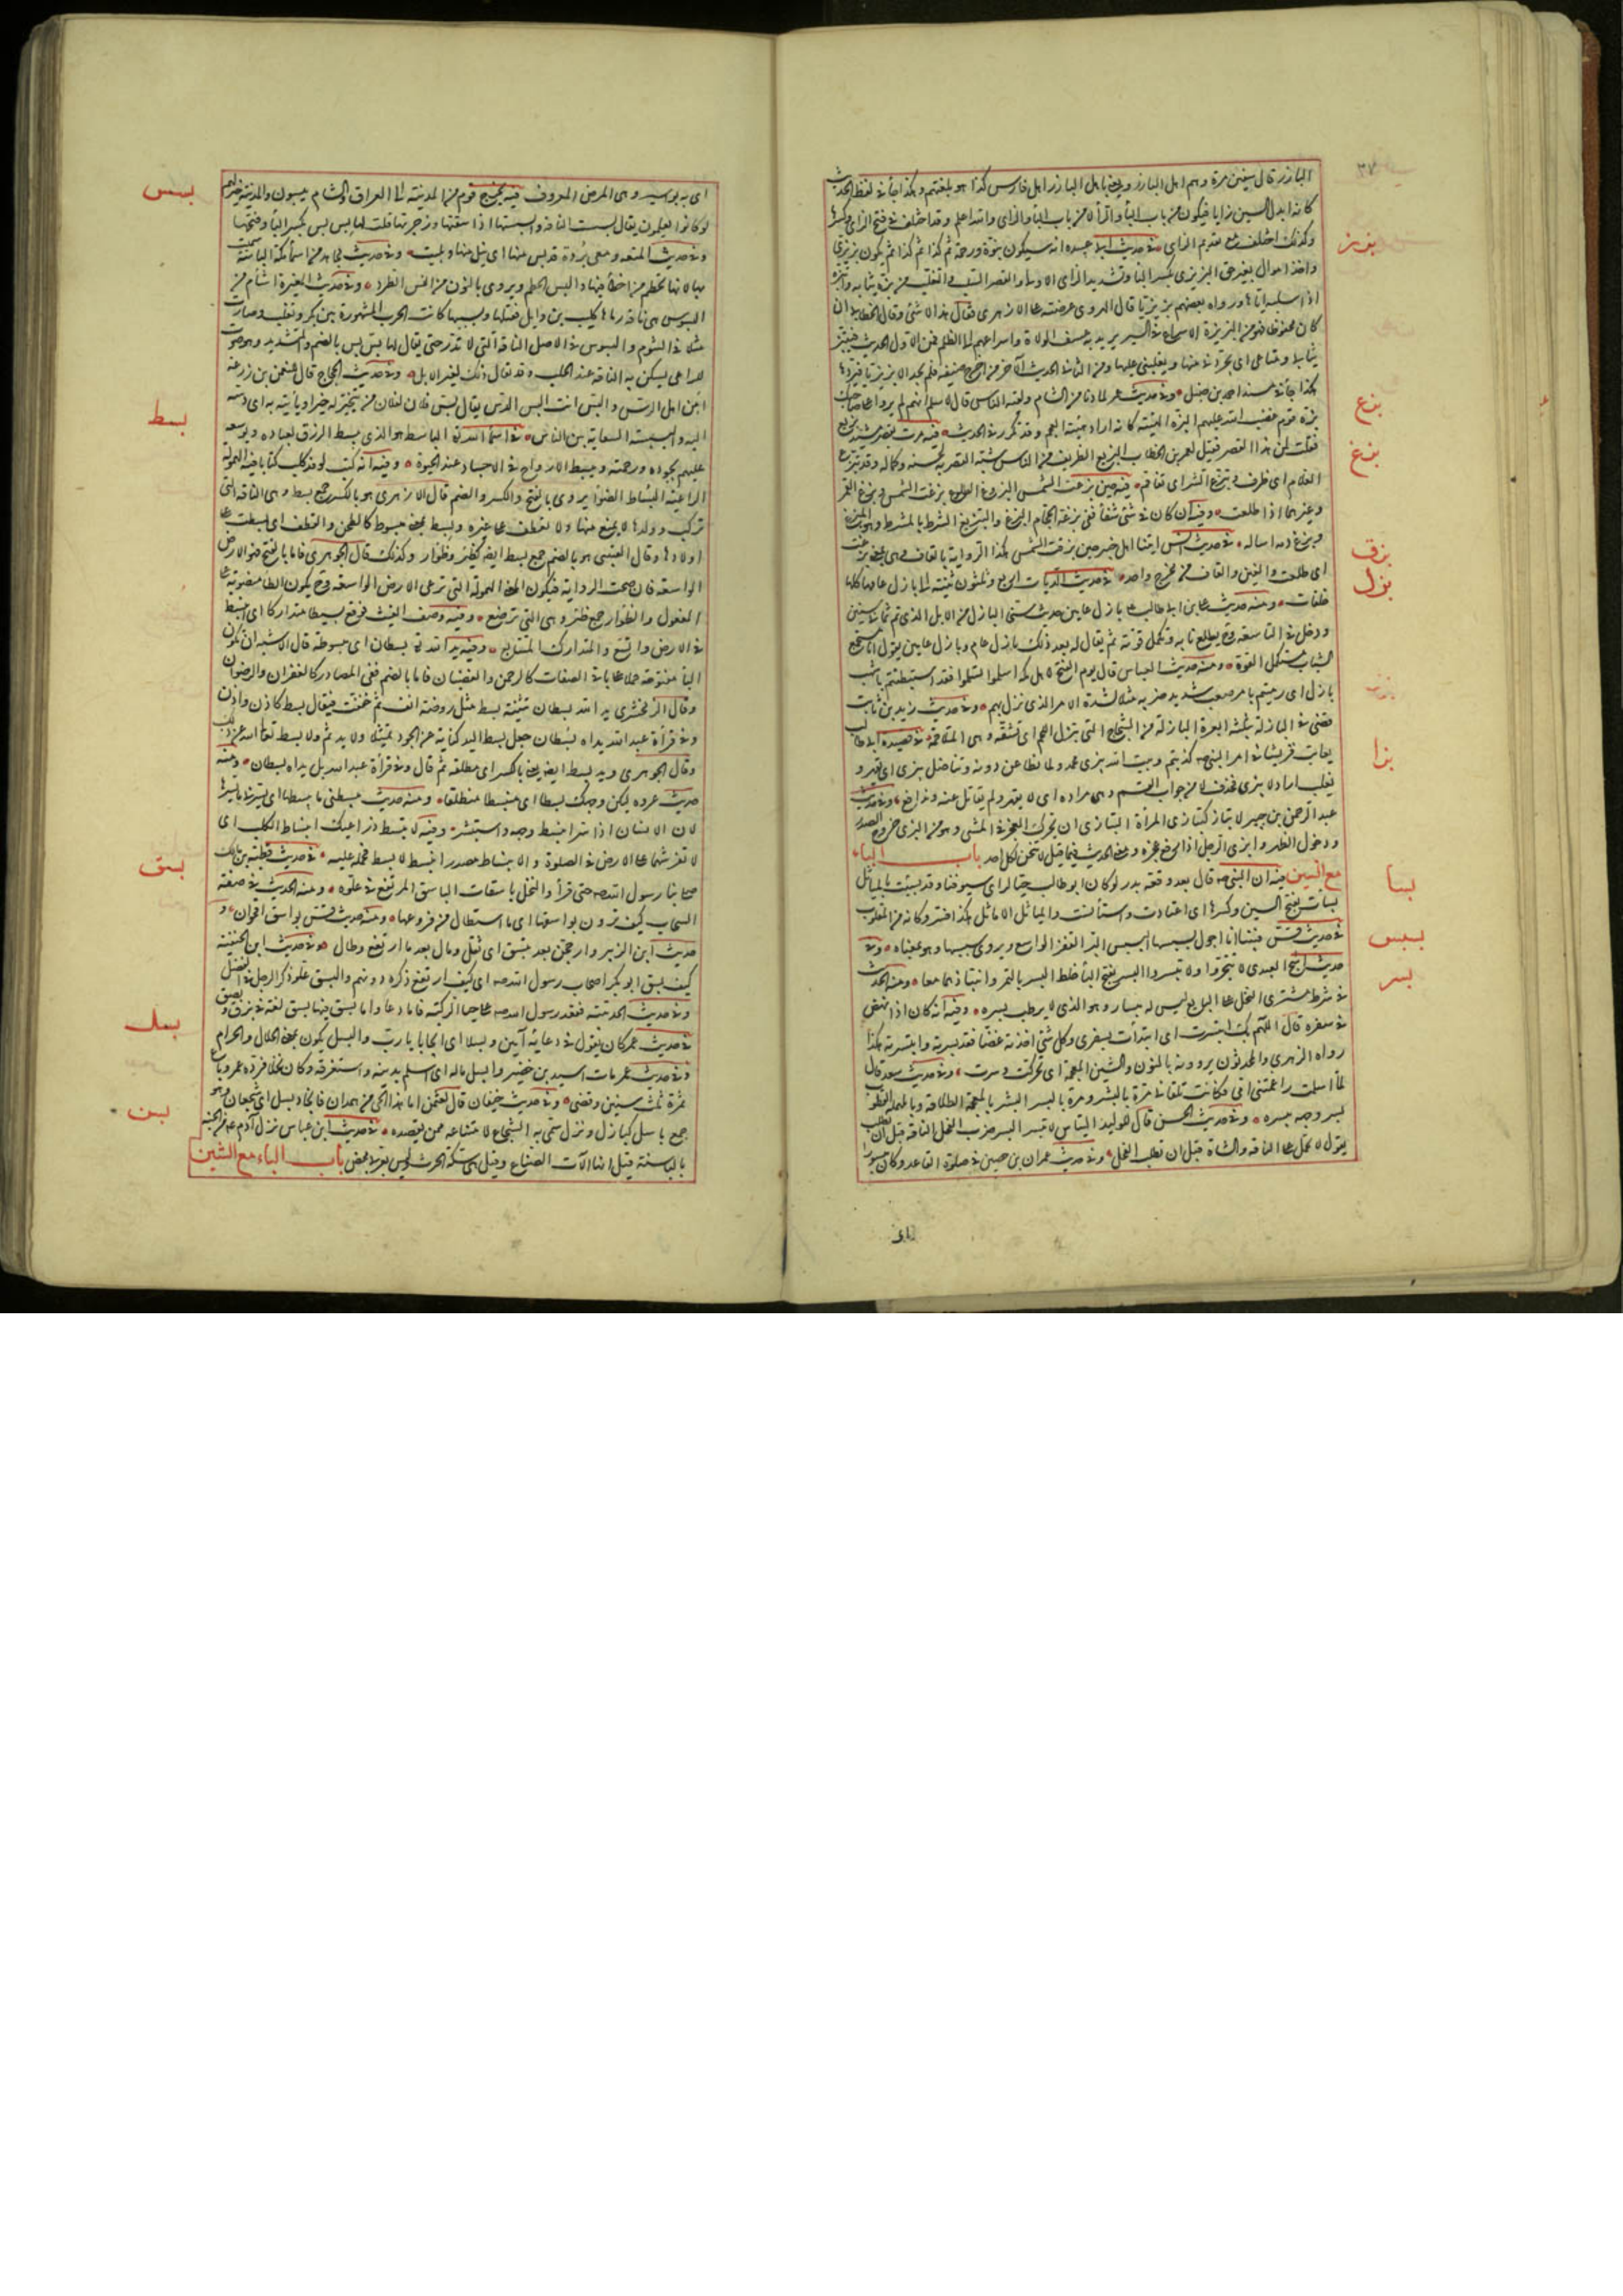 ٣٧
البازر قال سفين مرة وهم اهل البازر ويعني باهل البازر اهل فارس كذا هو بلغتهم وهكذا جاء في لفظ الحديث
كانه ابدل السين زايا فيكون من باب الباء والراء لا من باب الباء والزاى والله اعلم وقد اختلف في فتح الزاى وكسرها
بزز
وكذلك اختلف مع تقديم الزاى في حديث ابي عبيدة انه سيكون نبوة ورحمة ثم كذا ثم كذا ثم يكون بزيزى
واخذ اموال بغير حق البزيزى بكسر الباء وتشديد الزاى الاولى والقصر السلب والتغلب من بزه ثيابه وابتزه
اذا سلبه اياها ورواه بعضهم بزبزيا قال الهروى عرضته على الازهرى فقال هذا لا شئ وقال الخطابي ان
كان محفوظا فهو من البزبزة الاسراع في السير يريد به عسف الولاة واسراعهم الى الظلم فمن الاول الحديث فيبتز
ثيابى ومتاعى اى يجردنى منها ويغلبنى عليها ومن الثانى الحديث الآخر من اخرج ضيفه فلم يجد الا بزبزيا فيردها
هكذا جاء في مسند احمد بن حنبل وفي حديث عمر لما دنا من الشام ولقيه الناس قال لاسلم انهم لم يروا على صاحبك
بزع
بزة قوم غضب الله عليهم البزة الهيئة كانه اراد هيئة العجم وقد تكرر في الحديث فيه مررت بقصر مشيد بزيع
فقلت لمن هذا القصر فقيل لعمر بن الخطاب البزيع الظريف من الناس شبه القصر به لحسنه وكماله وقد تبزع
بزغ
الغلام اى ظرف وتبزع الشر اى تفاقم فيه حين بزغت الشمس البزوغ الطلوع بزغت الشمس وبزغ القمر
وغيرهما اذا طلعت وفيه ان كان في شئ شفاء ففى بزغة الحجام البزغ والتبزيغ الشرط بالمشرط وهو المبزغ
بزق
وبزغ دمه اساله في حديث انس اتينا اهل خيبر حين بزقت الشمس هكذا الرواية بالقاف وهى بمعنى بزغت
بزل
اى طلعت والغين والقاف من مخرج واحد في حديث الديات اربع وثلثون ثنية الى بازل عامها كلها
خلفات ومنه حديث علي بن ابي طالب بازل عامين حديث سنى البازل من الابل الذى تم ثمانى سنين
ودخل في التاسعة وح يطلع نابه وتكمل قوته ثم يقال له بعد ذلك بازل عام وبازل عامين يقول انا مستجمع
الشباب مستكمل القوة ومنه حديث العباس قال يوم الفتح لاهل مكة اسلموا تسلموا فقد استبطنتم باشهب
بازل اى رميتم بامر صعب شديد ضربه مثلا لشدة الامر الذى نزل بهم وفي حديث زيد بن ثابت
قضى في البازلة بثلثة ابعرة البازلة من الشجاج التى تبزل اللحم اى تشقه وهى المتلاحمة في قصيدة ابي طالب
بزا
يعاتب قريشا في امر النبي صه كذبتم وبيت الله يبزى محمد ولما نطاعن دونه ونناضل يبزى اى يقهر و
يغلب اراد لا يبزى فحذف لا من جواب القسم وهى مراده اى لا يقهر ولم نقاتل عنه وندافع وفي حديث
عبد الرحمن بن جبير لا تباز كتبازى المرأة التبازى ان تحرك العجز في المشى وهو من البزى خروج الصدر
ودخول الظهر وابزى الرجل اذا رفع عجزه ومعنى الحديث فيما قيل لا تنحن لكل احد باب الباء
مع السين فيه ان النبي صه قال بعد وقعة بدر لو كان ابو طالب حيا لراى سيوفنا وقد بسئت بالمياثل
بسا
بسات بفتح السين وكسرها اى اعتادت واستأنست والمياثل الاماثل هكذا فسر وكانه من المقلوب
بسبس
في حديث قس فبينا انا اجول بسبسها البسبس البر المقفر الواسع ويروى سبسبها وهو بمعناه وفي
بسر
حديث اشج العبدى لا تثجروا ولا تبسروا البسر بفتح الباء خلط البسر بالتمر وانتباذهما معا ومنه الحديث
في شرط مشترى النخل على البايع ليس له مبسار وهو الذى لا يرطب بسره وفيه انه كان اذا نهض
في سفره قال اللهم بك ابتسرت اى ابتدأت بسفرى وكل شئ اخذته غضا فقد بسرته وابتسرته هكذا
رواه الازهرى والمحدثون يروونه بالنون والشين المعجمة اى تحركت وسرت وفي حديث سعد قال
لما اسلمت راغمتنى امى فكانت تلقانى مرة بالبشر ومرة بالبسر البشر بالمعجمة الطلاقة وبالمهملة القطوب
بسر وجهه يبسره وفي حديث الحسن قال للوليد التياس لا تبسر البسر ضرب الفحل الناقة قبل ان تطلب
يقول لا تحمل على الناقة والشاة قبل ان تطلب الفحل وفي حديث عمران بن حصين في صلوة القاعد وكان مبسورا
اى به بواسير وهى المرض المعروف فيه يخرج قوم من المدينة الى العراق والشام يبسون والمدينة خير لهم
بسس
لو كانوا يعلمون يقال بسست الناقة وابسستها اذا سقتها وزجرتها وقلت لها بس بس بكسر الباء وفتحها
وفي حديث المتعة ومعى بردة قد بس منها اى نيل منها وبليت وفي حديث مجاهد من اسماء مكة الباسة سميت
بها لانها تحطم من اخطأ فيها والبس الحطم ويروى بالنون من النس الطرد وفي حديث المغيرة اشأم من
البسوس هى ناقة رماها كليب بن وايل فقتلها وبسببها كانت الحرب المشهورة بين بكر وتغلب وصارت
مثلا في الشوم والبسوس في الاصل الناقة التى لا تدر حتى يقال لها بس بس بالضم والتشديد وهو صوت
للراعى يسكن به الناقة عند الحلب وقد يقال ذلك لغير الابل وفي حديث الحجاج قال للنعمن بن زرعة
امن اهل الرس والبس انت البس الدس يقال بس فلان لفلان من يتخبر له خبره ويأتيه به اى دسه
بسط
اليه والبسبسة السعاية بين الناس في اسماء الله تع الباسط هو الذى يبسط الرزق لعباده ويوسعه
عليهم بجوده ورحمته ويبسط الارواح في الاجساد عند الحيوة وفيه انه كتب لوفد كلب كتابا فيه الهمولة
الراعية البساط الظؤار يروى بالفتح والكسر والضم قال الازهرى هو بالكسر جمع بسط وهى الناقة التى
تركت وولدها لا يمنع منها ولا تعطف على غيره وبسط بمعنى مبسوط كالطحن والقطف اى بسطت على
اولادها وقال القتيبى هو بالضم جمع بسط ايضا كظئر وظؤار وكذلك قال الجوهرى فاما بالفتح فهو الارض
الواسعة فان صحت الرواية فيكون المعنى الهمولة التى ترعى الارض الواسعة وح يكون الطاء منصوبة على
المفعول والظؤار جمع ظئر وهى التى ترضع وفيه وصف الغيث فوقع بسيطا متداركا اى انبسط
في الارض واتسع والمتدارك المتتابع وفيه يد الله تع بسطان اى مبسوطة قال الاشبه ان تكون
الباء مفتوحة حملا على باقى الصفات كالرحمن والغضبان فاما بالضم ففى المصادر كالغفران والرضوان
وقال الزمخشرى يد الله بسطان تثنية بسط مثل روضة انف ثم خففت فيقال بسط كاذن واذن
وفي قرأة عبد الله يداه بسطان جعل بسط اليد كناية عن الجود تمثيلا ولا يد ثم ولا بسط تعالى الله عن ذلك
وقال الجوهرى ويد بسط ايضا يعنى بالكسر اى مطلقة ثم قال وفي قرأة عبد الله بل يداه بسطان ومنه
حديث عروة ليكن وجهك بسطا اى منبسطا منطلقا ومنه حديث يبسطنى ما يبسطها اى يسرنى ما يسرها
لان الانسان اذا سر انبسط وجهه واستبشر وفيه لا تبسط ذراعيك انبساط الكلب اى
لا تفرشهما على الارض في الصلوة والانبساط مصدر انبسط لا بسط فحمله عليه في حديث قطبة بن مالك
بسق
صلى بنا رسول الله صه حتى قرأ والنخل باسقات الباسق المرتفع في علوه ومنه الحديث في صفة
السحاب كيف ترون بواسقها اى ما استطال من فروعها ومنه حديث قس بواسق اقحوان و
حديث ابن الزبير وارجحن بعد تبسق اى ثقل ومال بعد ما ارتفع وطال وفي حديث ابن الحنفية
كيف بسق ابو بكر اصحاب رسول الله صه اى كيف ارتفع ذكره دونهم والبسق علو ذكر الرجل في الفضل
وفي حديث الحديبية فقعد رسول الله صه على جبا الركية فاما دعا واما بسق فيها بسق لغة في بزق وبصق
بسل
في حديث عمر كان يقول في دعائه آمين وبسلا اى ايجابا يا رب والبسل يكون بمعنى الحلال والحرام
وفي حديث عمر مات اسيد بن حضير وابسل ماله اى اسلم بدينه واستغرقه وكان نخلا فرده عمر وباع
ثمره ثلث سنين وقضى وفي حديث خيفان قال لعثمن اما هذا الحى من همدان فانجاد بسل اى شجعان وهو
بسن
جمع باسل كبازل وبزل سمى به الشجاع لامتناعه ممن يقصده في حديث ابن عباس نزل آدم عم من الجنة
بالباسنة قيل انها الآت الصناع وقيل هى سكة الحرث وليس بعربى محض باب الباء مع الشين